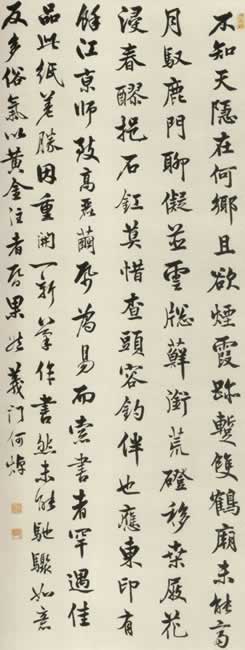 不知天隱在何鄉且欲煙霞跡蹔雙鶴廟未能齊
月馭鹿門聊儗並雲牕蘚銜荒磴移桑屐花
浸春醪挹石缸莫惜查頭容釣伴也應東印有
餘江京師致高麗繭帋為易而索書者罕遇佳
品此紙差勝因重開一新筆作書然未能馳驟如意
反多俗氣以黃金注者昏果然義門何焯